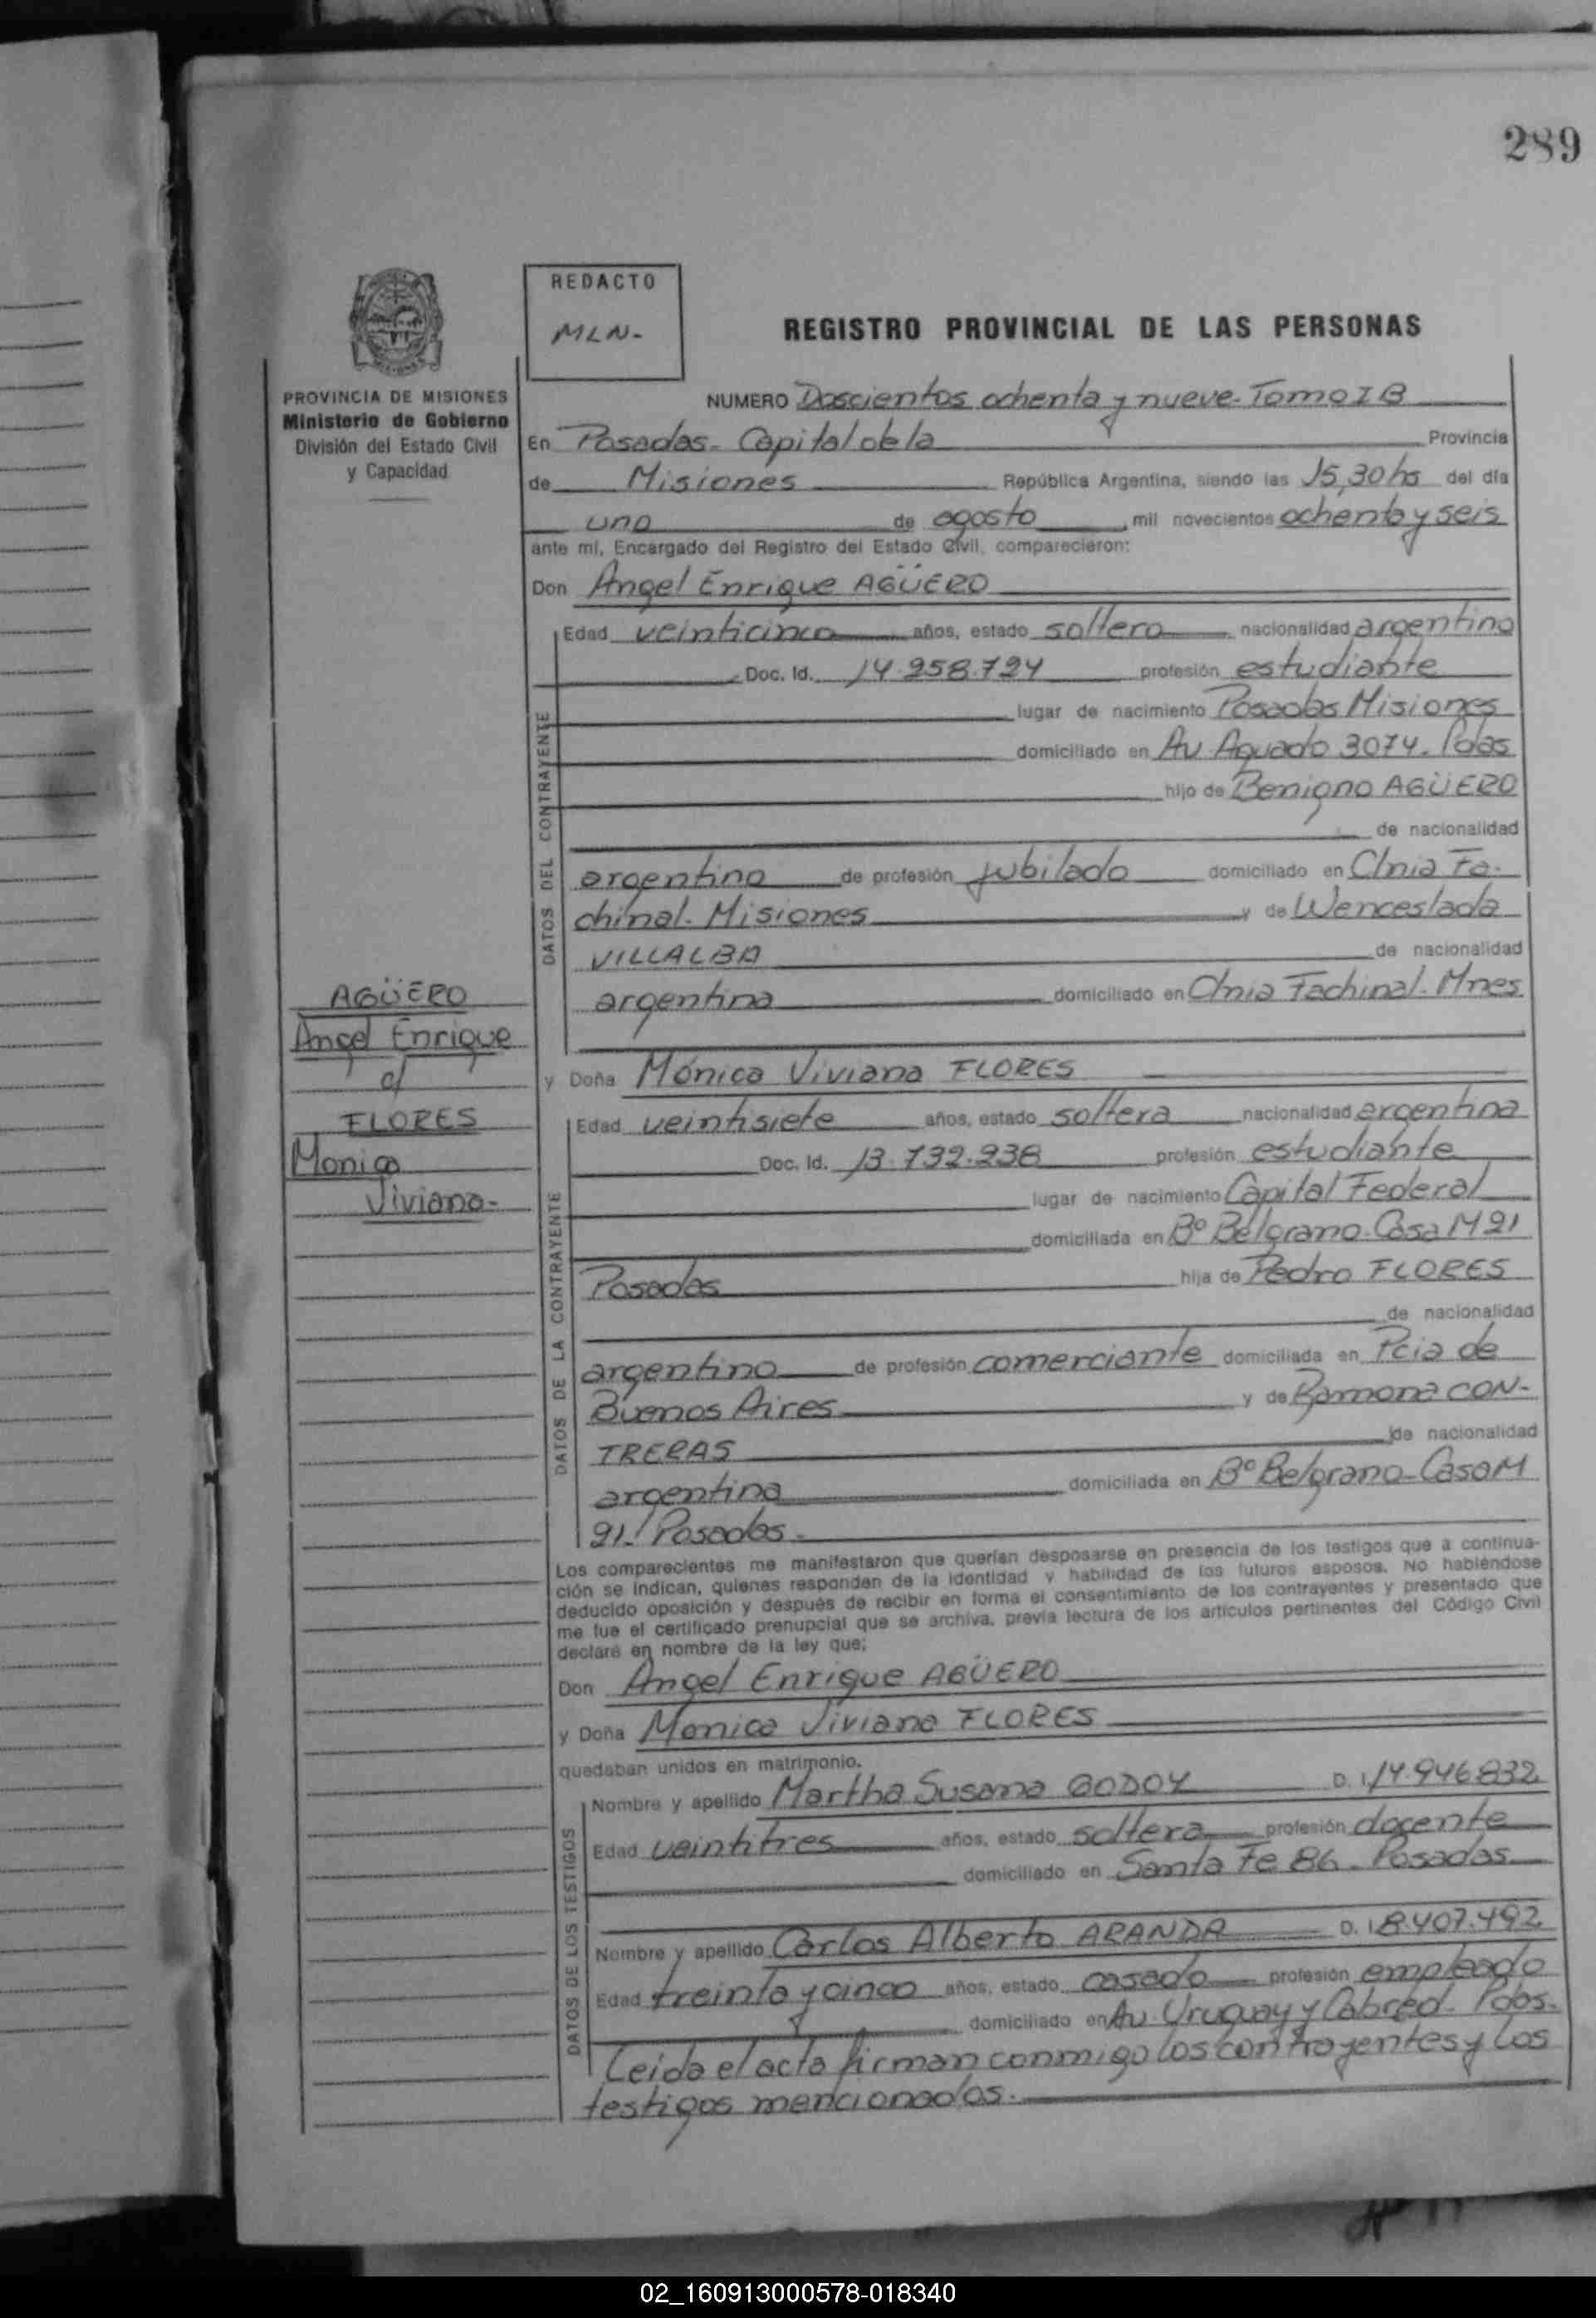 289
REDACTO
MLN-
REGISTRO PROVINCIAL DE LAS PERSONAS
PROVINCIA DE MISIONES
Ministerio de Gobierno
División del Estado Civil
y Capacidad
NUMERO Doscientos ochenta y nueve- Tomo I B
En Posadas- Capital de la Provincia
de Misiones República Argentina, siendo las 15,30 hs del día
uno de agosto mil novecientos ochenta y seis
ante mí, Encargado del Registro del Estado Civil, comparecieron:
Don Angel Enrique AGÜERO
DATOS DEL CONTRAYENTE
Edad veinticinco años, estado soltero nacionalidad argentino
Doc. Id. 14.258.724 profesión estudiante
lugar de nacimiento Posadas Misiones
domiciliado en Av Aguado 3074. Pdas
hijo de Benigno AGÜERO
de nacionalidad
argentino de profesión jubilado domiciliado en Clnia Fa-
chinal- Misiones y de Wenceslada
VILLALBA de nacionalidad
argentina domiciliado en Clnia Fachinal- Mnes
AGÜERO
Angel Enrique
c/
FLORES
Monica
Viviana-
y Doña Mónica Viviana FLORES
DATOS DE LA CONTRAYENTE
Edad veintisiete años, estado soltera nacionalidad argentina
Doc. Id. 13.732.238 profesión estudiante
lugar de nacimiento Capital Federal
domiciliada en Bº Belgrano- Casa M 91
Posadas hija de Pedro FLORES
de nacionalidad
argentino de profesión comerciante domiciliada en Pcia de
Buenos Aires y de Ramona CON-
TRERAS de nacionalidad
argentina domiciliada en Bº Belgrano- Casa M
91- Posadas-
Los comparecientes me manifestaron que querían desposarse en presencia de los testigos que a continua-
ción se indican, quienes responden de la identidad y habilidad de los futuros esposos. No habiéndose
deducido oposición y después de recibir en forma el consentimiento de los contrayentes y presentado que
me fue el certificado prenupcial que se archiva, previa lectura de los artículos pertinentes del Código Civil
declaré en nombre de la ley que;
Don Angel Enrique AGÜERO
y Doña Monica Viviana FLORES
quedaban unidos en matrimonio.
DATOS DE LOS TESTIGOS
Nombre y apellido Martha Susana GODOY D. I. 14.946.832
Edad veintitres años, estado soltera profesión docente
domiciliado en Santa Fe 86- Posadas
Nombre y apellido Carlos Alberto ARANDA D. I. 8.407.492
Edad treinta y cinco años, estado casado profesión empleado
domiciliado en Av. Uruguay y Cabred- Pdas-
Leida el acta firman conmigo los contrayentes y los
testigos mencionados.-
02_160913000578-018340